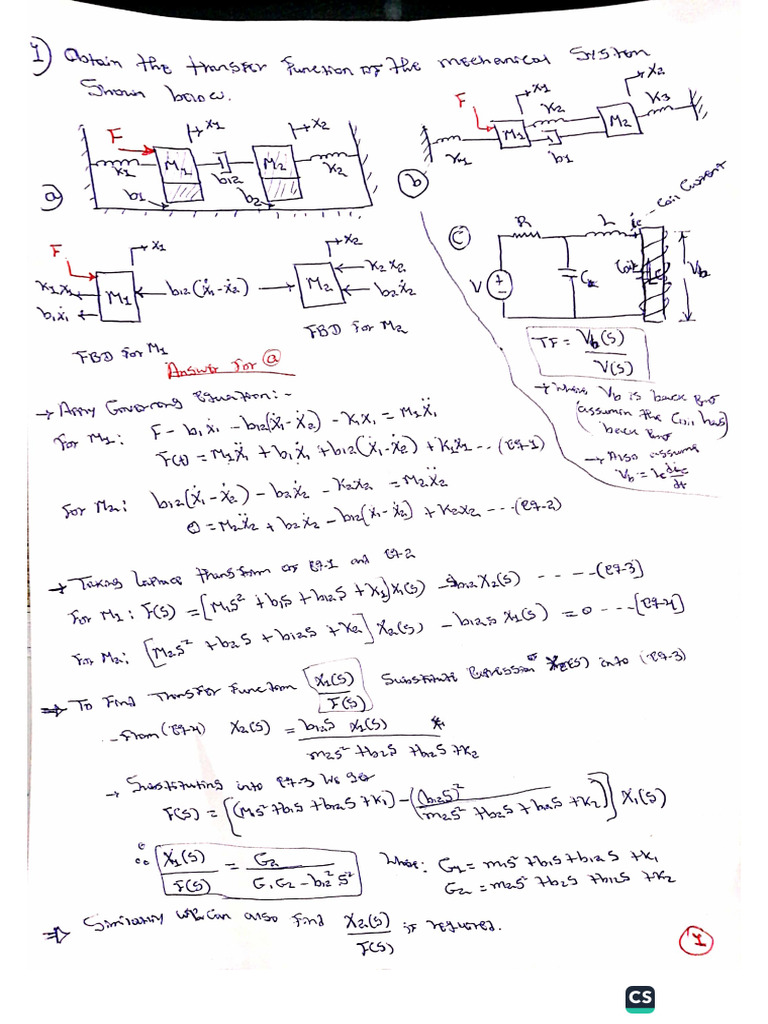 1) Obtain the transfer function of the mechanical system
Shown below.
F x1 x2
K1 M1 b12 M2 K2
b1 b2
a
F x1 x2
K1 M1 K2 b1 M2 K3
b
c
R L ic - coil current
V C Coil Vb
TF = Vb(s)/V(s)
→ where, Vb is back emf
(assuming the coil has
back emf
→ Also assume
Vb = k dic/dt
F x1 x2
K1x1 M1 b12(ẋ1-ẋ2) M2 K2x2
b1ẋ1 b2ẋ2
FBD for M1 FBD for M2
Answer for a
→ Apply Governing Equation:-
For M1: F - b1ẋ1 - b12(ẋ1-ẋ2) - K1x1 = M1ẍ1
F(t) = M1ẍ1 + b1ẋ1 + b12(ẋ1-ẋ2) + K1x1 --- (Eq-1)
For M2: b12(ẋ1-ẋ2) - b2ẋ2 - K2x2 = M2ẍ2
0 = M2ẍ2 + b2ẋ2 - b12(ẋ1-ẋ2) + K2x2 --- (Eq-2)
→ Taking Laplace transform of Eq-1 and Eq-2
For M1: F(s) = [M1s² + b1s + b12s + K1]X1(s) - sb12X2(s) - - - - - (Eq-3)
For M2: [M2s² + b2s + b12s + K2]X2(s) - b12s X1(s) = 0 - - - (Eq-4)
⇒ To Find Transfer Function X1(s)/F(s) Substitute Expression of X2(s) into (Eq-3)
- From (Eq-4) X2(s) = b12s X1(s) / m2s² + b2s + b12s + K2
→ Substituting into Eq-3 we get
F(s) = [(M1s² + b1s + b12s + K1) - ((b12s)² / m2s² + b2s + b12s + K2)] X1(s)
∴ X1(s)/F(s) = G2 / G1G2 - b12²s² Where: G1 = m1s² + b1s + b12s + K1
G2 = m2s² + b2s + b12s + K2
⇒ Similarly we can also find X2(s)/F(s) if required.
1
CS